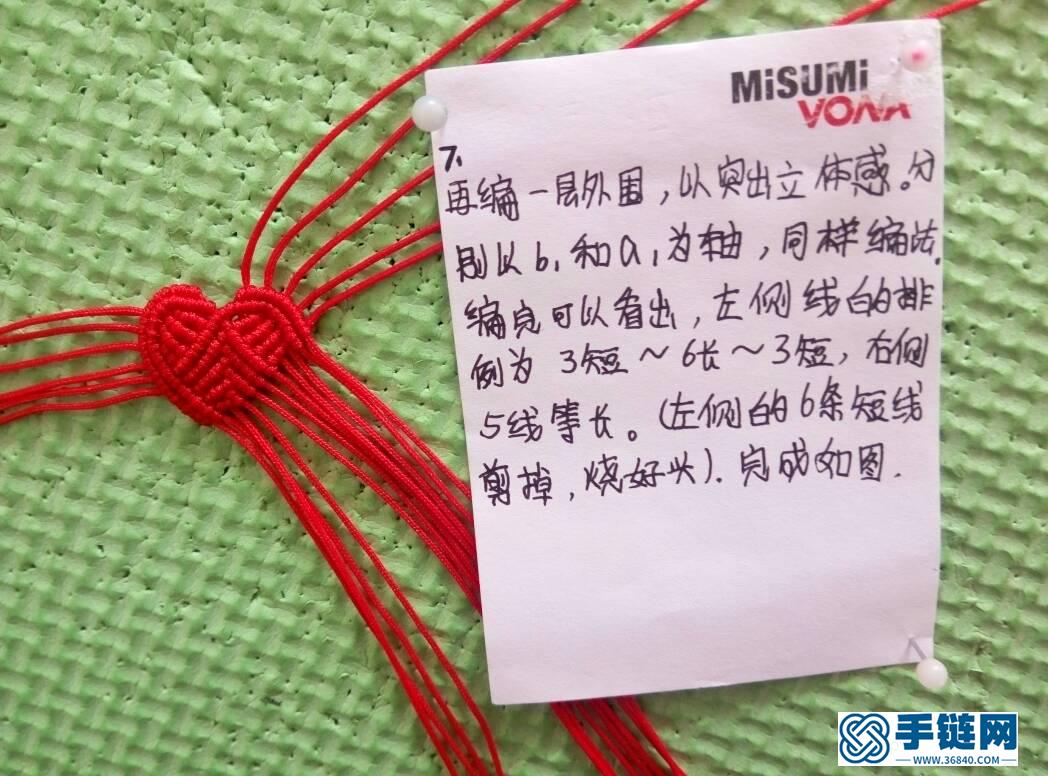 MiSUMi
VONA
7、
再编一层外围，以突出立体感。分
别以b₁和a₁为轴，同样编法.
编完可以看出，左侧线的排
例为 3短～6长～3短，右侧
5线等长。(左侧的6条短线
剪掉，烧好头). 完成如图.
手链网
WWW.36840.COM